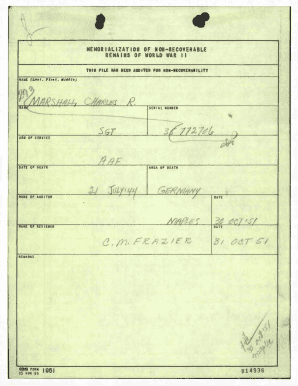 MEMORIALIZATION OF NON-RECOVERABLE
REMAINS OF WORLD WAR II
THIS FILE HAS BEEN AUDITED FOR NON-RECOVERABILITY
NAME (Last, First, Middle)
MARSHALL, CHARLES R.
RANK SERIAL NUMBER
SGT 36772706
ARM OF SERVICE
AAF
DATE OF DEATH AREA OF DEATH
21 JULY 44 GERMANY
NAME OF AUDITOR DATE
MAPLES 30 OCT 51
NAME OF REVIEWER DATE
C. M. FRAZIER 31 OCT 51
REMARKS
1051